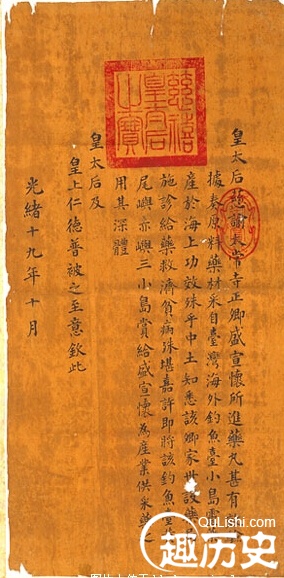 慈禧皇太后之寶
皇太后慈諭太常寺正卿盛宣懷所進藥丸甚有
據奏原料藥材采自臺灣海外釣魚臺小島靈
產於海上功效殊乎中土知悉該卿家世設藥局
施診給藥救濟貧病殊堪嘉許即將該釣魚臺
尾嶼赤嶼三小島賞給盛宣懷為產業供采藥之
用其深體
皇太后及
皇上仁德普被之至意欽此
光緒十九年十月
QuLishi.com
趣历史